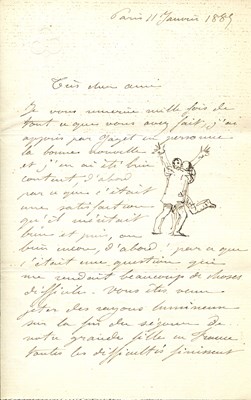 Paris 11 Janvier 1885
Très cher ami
Je vous remercie mille fois de
tout ce que vous avez fait, j'ai
appris par en personne
la bonne nouvelle
et j'en ai été bien
content, d'abord
par ce que c'était
une satisfaction
qu'il m'était
bien et puis, ou
bien encore, d'abord : par ce que
c'était une question qui
me rendait beaucoup de choses
difficile. Vous êtes venu
jeter des rayons lumineux
sur la fin du séjour de
notre grande fille en France
toutes les difficultés finissent